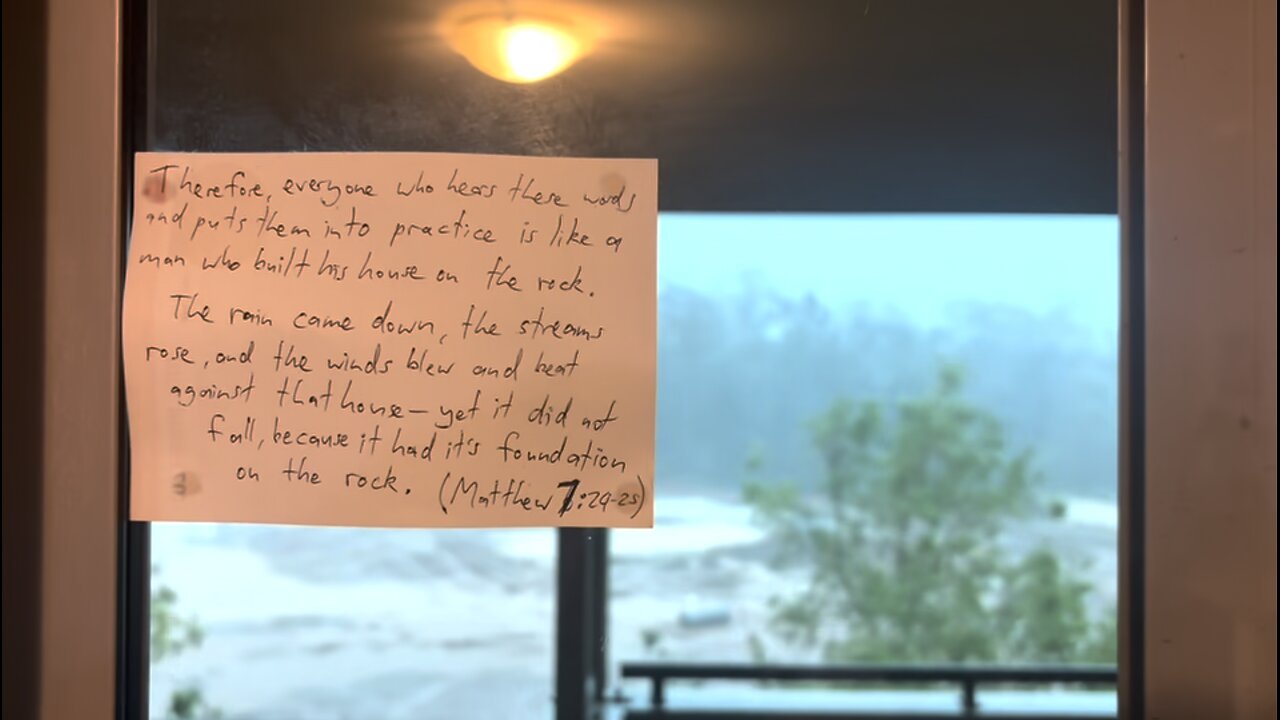 Therefore, everyone who hears these words
and puts them into practice is like a
man who built his house on the rock.
The rain came down, the streams
rose, and the winds blew and beat
against that house – yet it did not
fall, because it had it's foundation
on the rock. (Matthew 7:24-25)